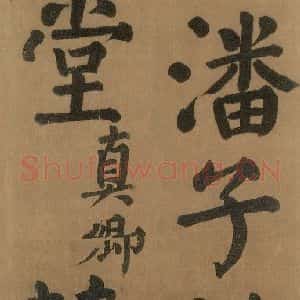 潘子
堂真卿
Shufawang.CN